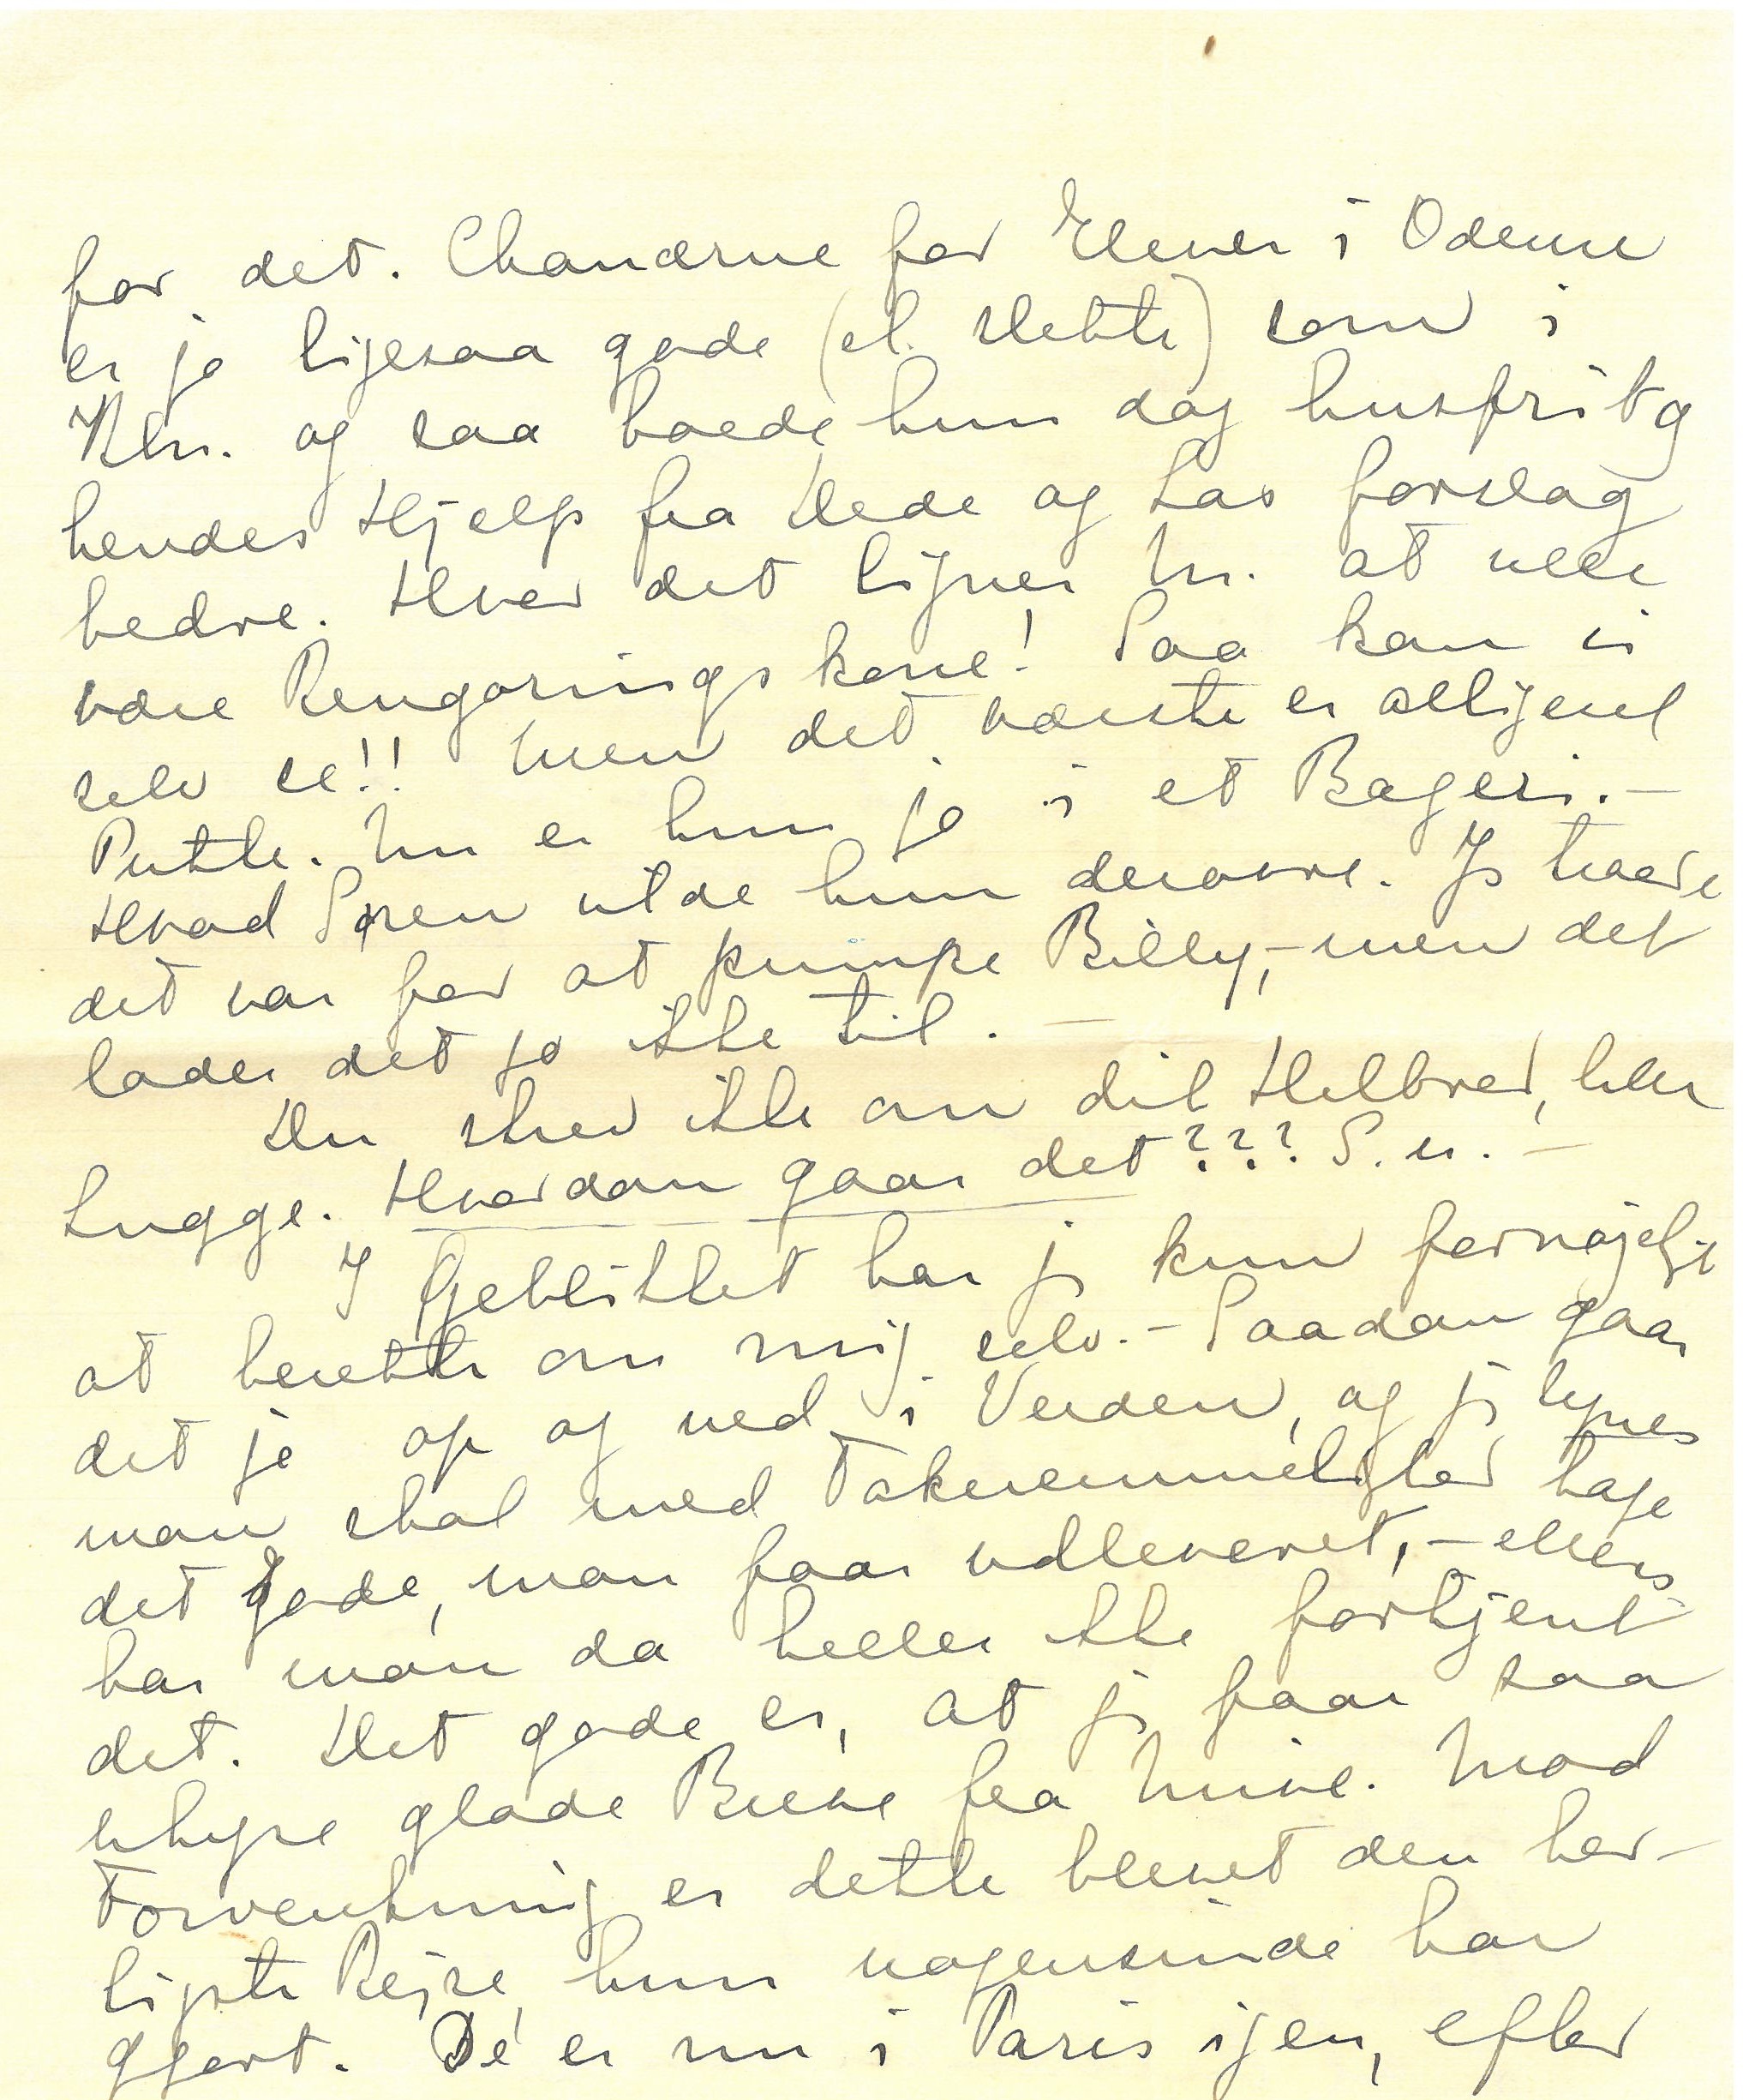 for det. Chancerne for Elever i Odense
er jo ligesaa gode (el. slette) som i
Kbh. og saa boede hun dog husfrit og
hendes Hjælp fra Dede og Las forslog
bedre. Hvor det ligner M. at ville
være Rengøringskone! Saa kan vi
selv se!! Men det værste er alligevel
Putte. Nu er hun jo i et Bageri. –
Hvad Søren vilde hun derovre. Jeg troede
det var for at pumpe Billy, – men det
lader det jo ikke til. –
Du skrev ikke om dit Helbred, heller
Lugge. Hvordan gaar det??? S.u. –
I Øjeblikket har jeg kun fornøjeligt
at berette om mig selv. – Saadan gaar
det jo op og ned i Verden, og jeg synes
man skal med Taknemmelighed tage
det Gode, man faar udleveret, – ellers
har man da heller ikke fortjent
det. Det gode er, at jeg faar saa
uhyre glade Breve fra Mine. Mod
Forventning er dette blevet den her-
ligste Rejse, hun nogensinde har
gjort. De er nu i Paris igen, efter